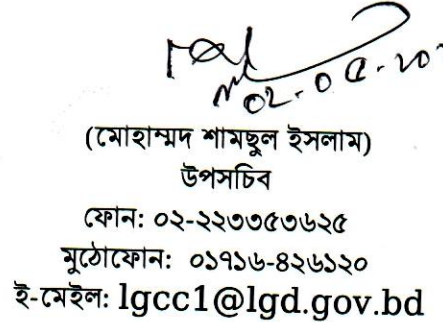 ০২-০৫-২০
(মোহাম্মদ শামছুল ইসলাম)
উপসচিব
ফোন: ০২-২২৩৩৫৩৬২৫
মুঠোফোন: ০১৭১৬-৪২৬১২০
ই-মেইল: lgcc1@lgd.gov.bd